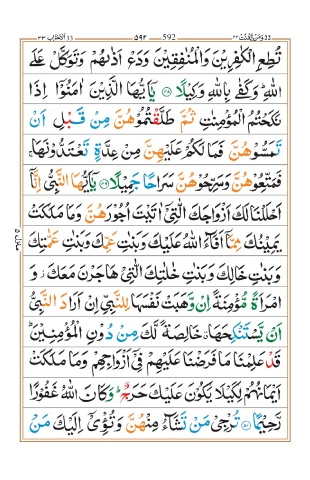 الاحزاب ٣٣ 592 ٥٩٢ ومن يقنت ٢٢
تُطِعِ الْكٰفِرِيْنَ وَالْمُنٰفِقِيْنَ وَدَعْ اَذٰىهُمْ وَتَوَكَّلْ عَلَى
اللّٰهِ ؕ وَكَفٰى بِاللّٰهِ وَكِيْلًا ﴿۴۸﴾ يٰۤاَيُّهَا الَّذِيْنَ اٰمَنُوْۤا اِذَا
نَكَحْتُمُ الْمُؤْمِنٰتِ ثُمَّ طَلَّقْتُمُوْهُنَّ مِنْ قَبْلِ اَنْ
تَمَسُّوْهُنَّ فَمَا لَكُمْ عَلَيْهِنَّ مِنْ عِدَّةٍ تَعْتَدُّوْنَهَا ۚ
فَمَتِّعُوْهُنَّ وَسَرِّحُوْهُنَّ سَرَاحًا جَمِيْلًا ﴿۴۹﴾ يٰۤاَيُّهَا النَّبِىُّ اِنَّاۤ
اَحْلَلْنَا لَكَ اَزْوَاجَكَ الّٰتِىْۤ اٰتَيْتَ اُجُوْرَهُنَّ وَمَا مَلَكَتْ
يَمِيْنُكَ مِمَّاۤ اَفَآءَ اللّٰهُ عَلَيْكَ وَبَنٰتِ عَمِّكَ وَبَنٰتِ عَمّٰتِكَ
وَبَنٰتِ خَالِكَ وَبَنٰتِ خٰلٰتِكَ الّٰتِىْ هَاجَرْنَ مَعَكَ ؗ وَ
امْرَاَةً مُّؤْمِنَةً اِنْ وَّهَبَتْ نَفْسَهَا لِلنَّبِىِّ اِنْ اَرَادَ النَّبِىُّ
اَنْ يَّسْتَنْكِحَهَا ۗ خَالِصَةً لَّكَ مِنْ دُوْنِ الْمُؤْمِنِيْنَ ؕ
قَدْ عَلِمْنَا مَا فَرَضْنَا عَلَيْهِمْ فِىْۤ اَزْوَاجِهِمْ وَمَا مَلَكَتْ
اَيْمَانُهُمْ لِكَيْلَا يَكُوْنَ عَلَيْكَ حَرَجٌ ؕ وَكَانَ اللّٰهُ غَفُوْرًا
رَّحِيْمًا ﴿۵۰﴾ تُرْجِىْ مَنْ تَشَآءُ مِنْهُنَّ وَتُـــْٔوِىْۤ اِلَيْكَ مَنْ